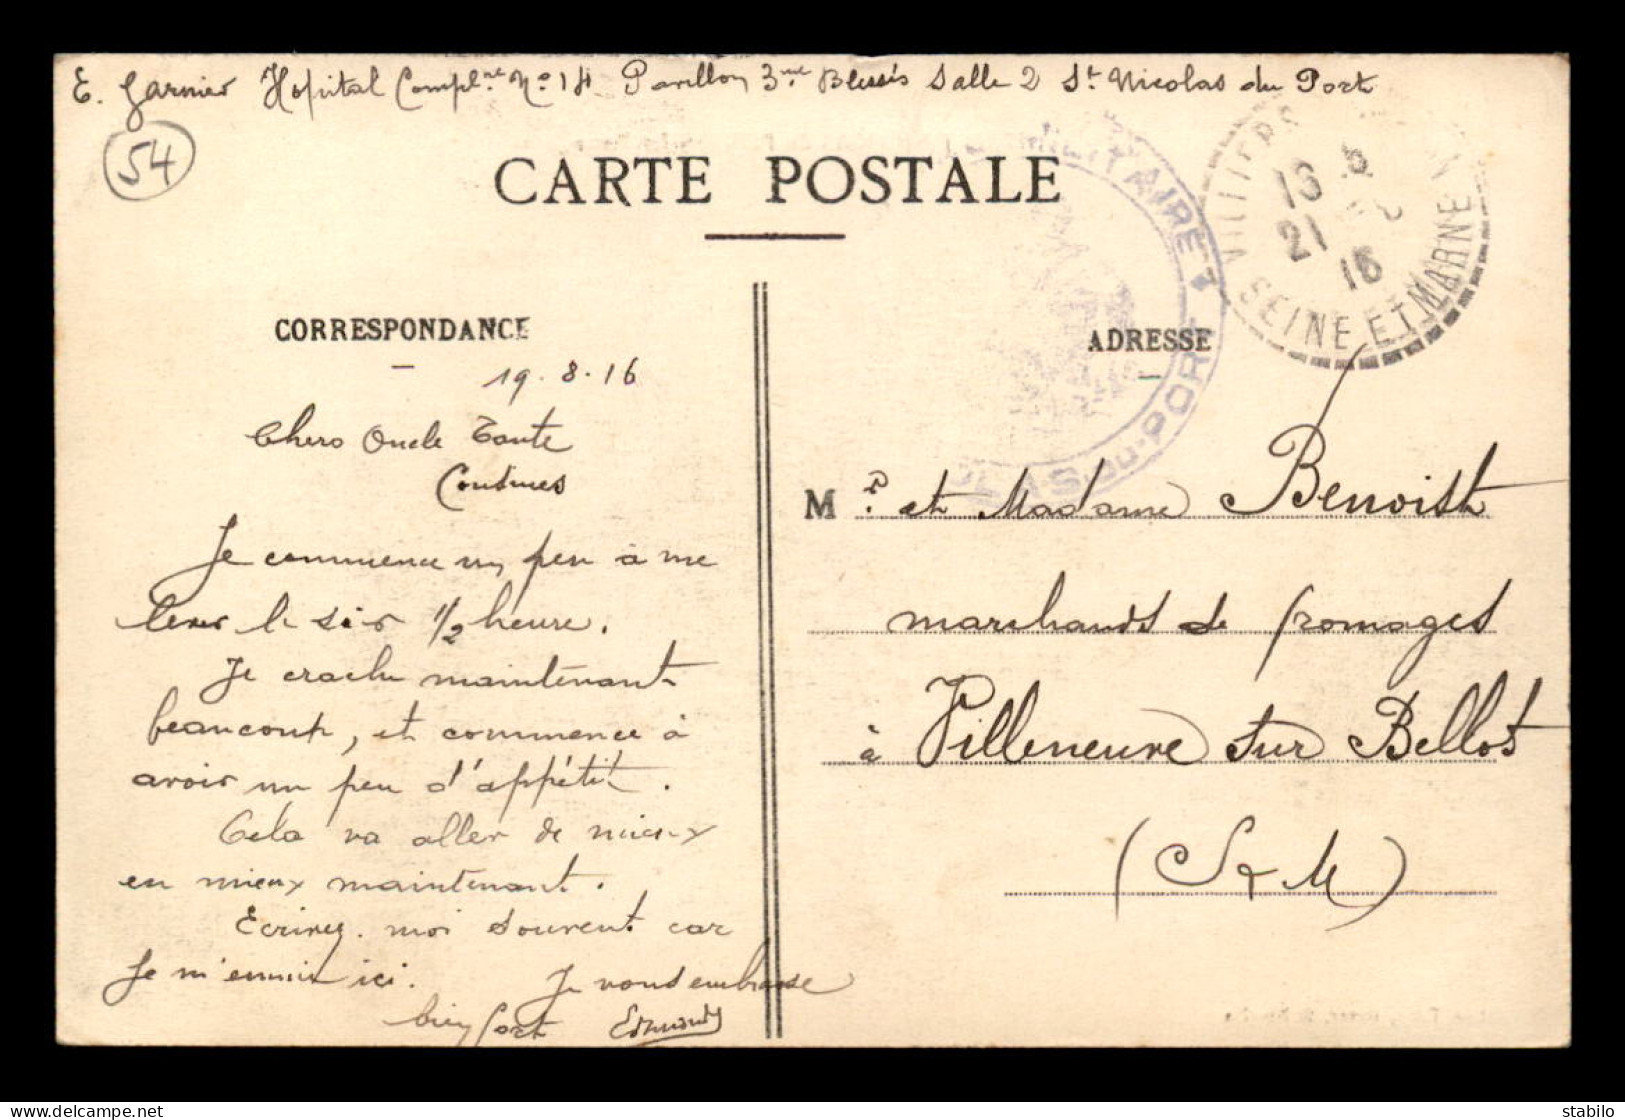 E. Garnier Hopital Compl.re No 14 Pavillon 3me Blessés Salle 2 St Nicolas du Port
54
CARTE POSTALE
CORRESPONDANCE
19.8.16
Chers Oncle Tante
Cousines
Je commence un peu à me
lever le soir 1/2 heure.
Je crache maintenant
beaucoup, et commence à
avoir un peu d'appétit.
Cela va aller de mieux
en mieux maintenant.
Ecrivez-moi souvent car
Je m'ennuie ici.
Je vous embrasse
bien fort Edmond
ADRESSE
Mr. et Madame Benoist
marchands de fromages
à Villeneuve sur Bellot
(S & M)
SEINE ET MARNE
16
21
16
MILITAIRE
AS-DU-PORT
delcampe.net
stabilo